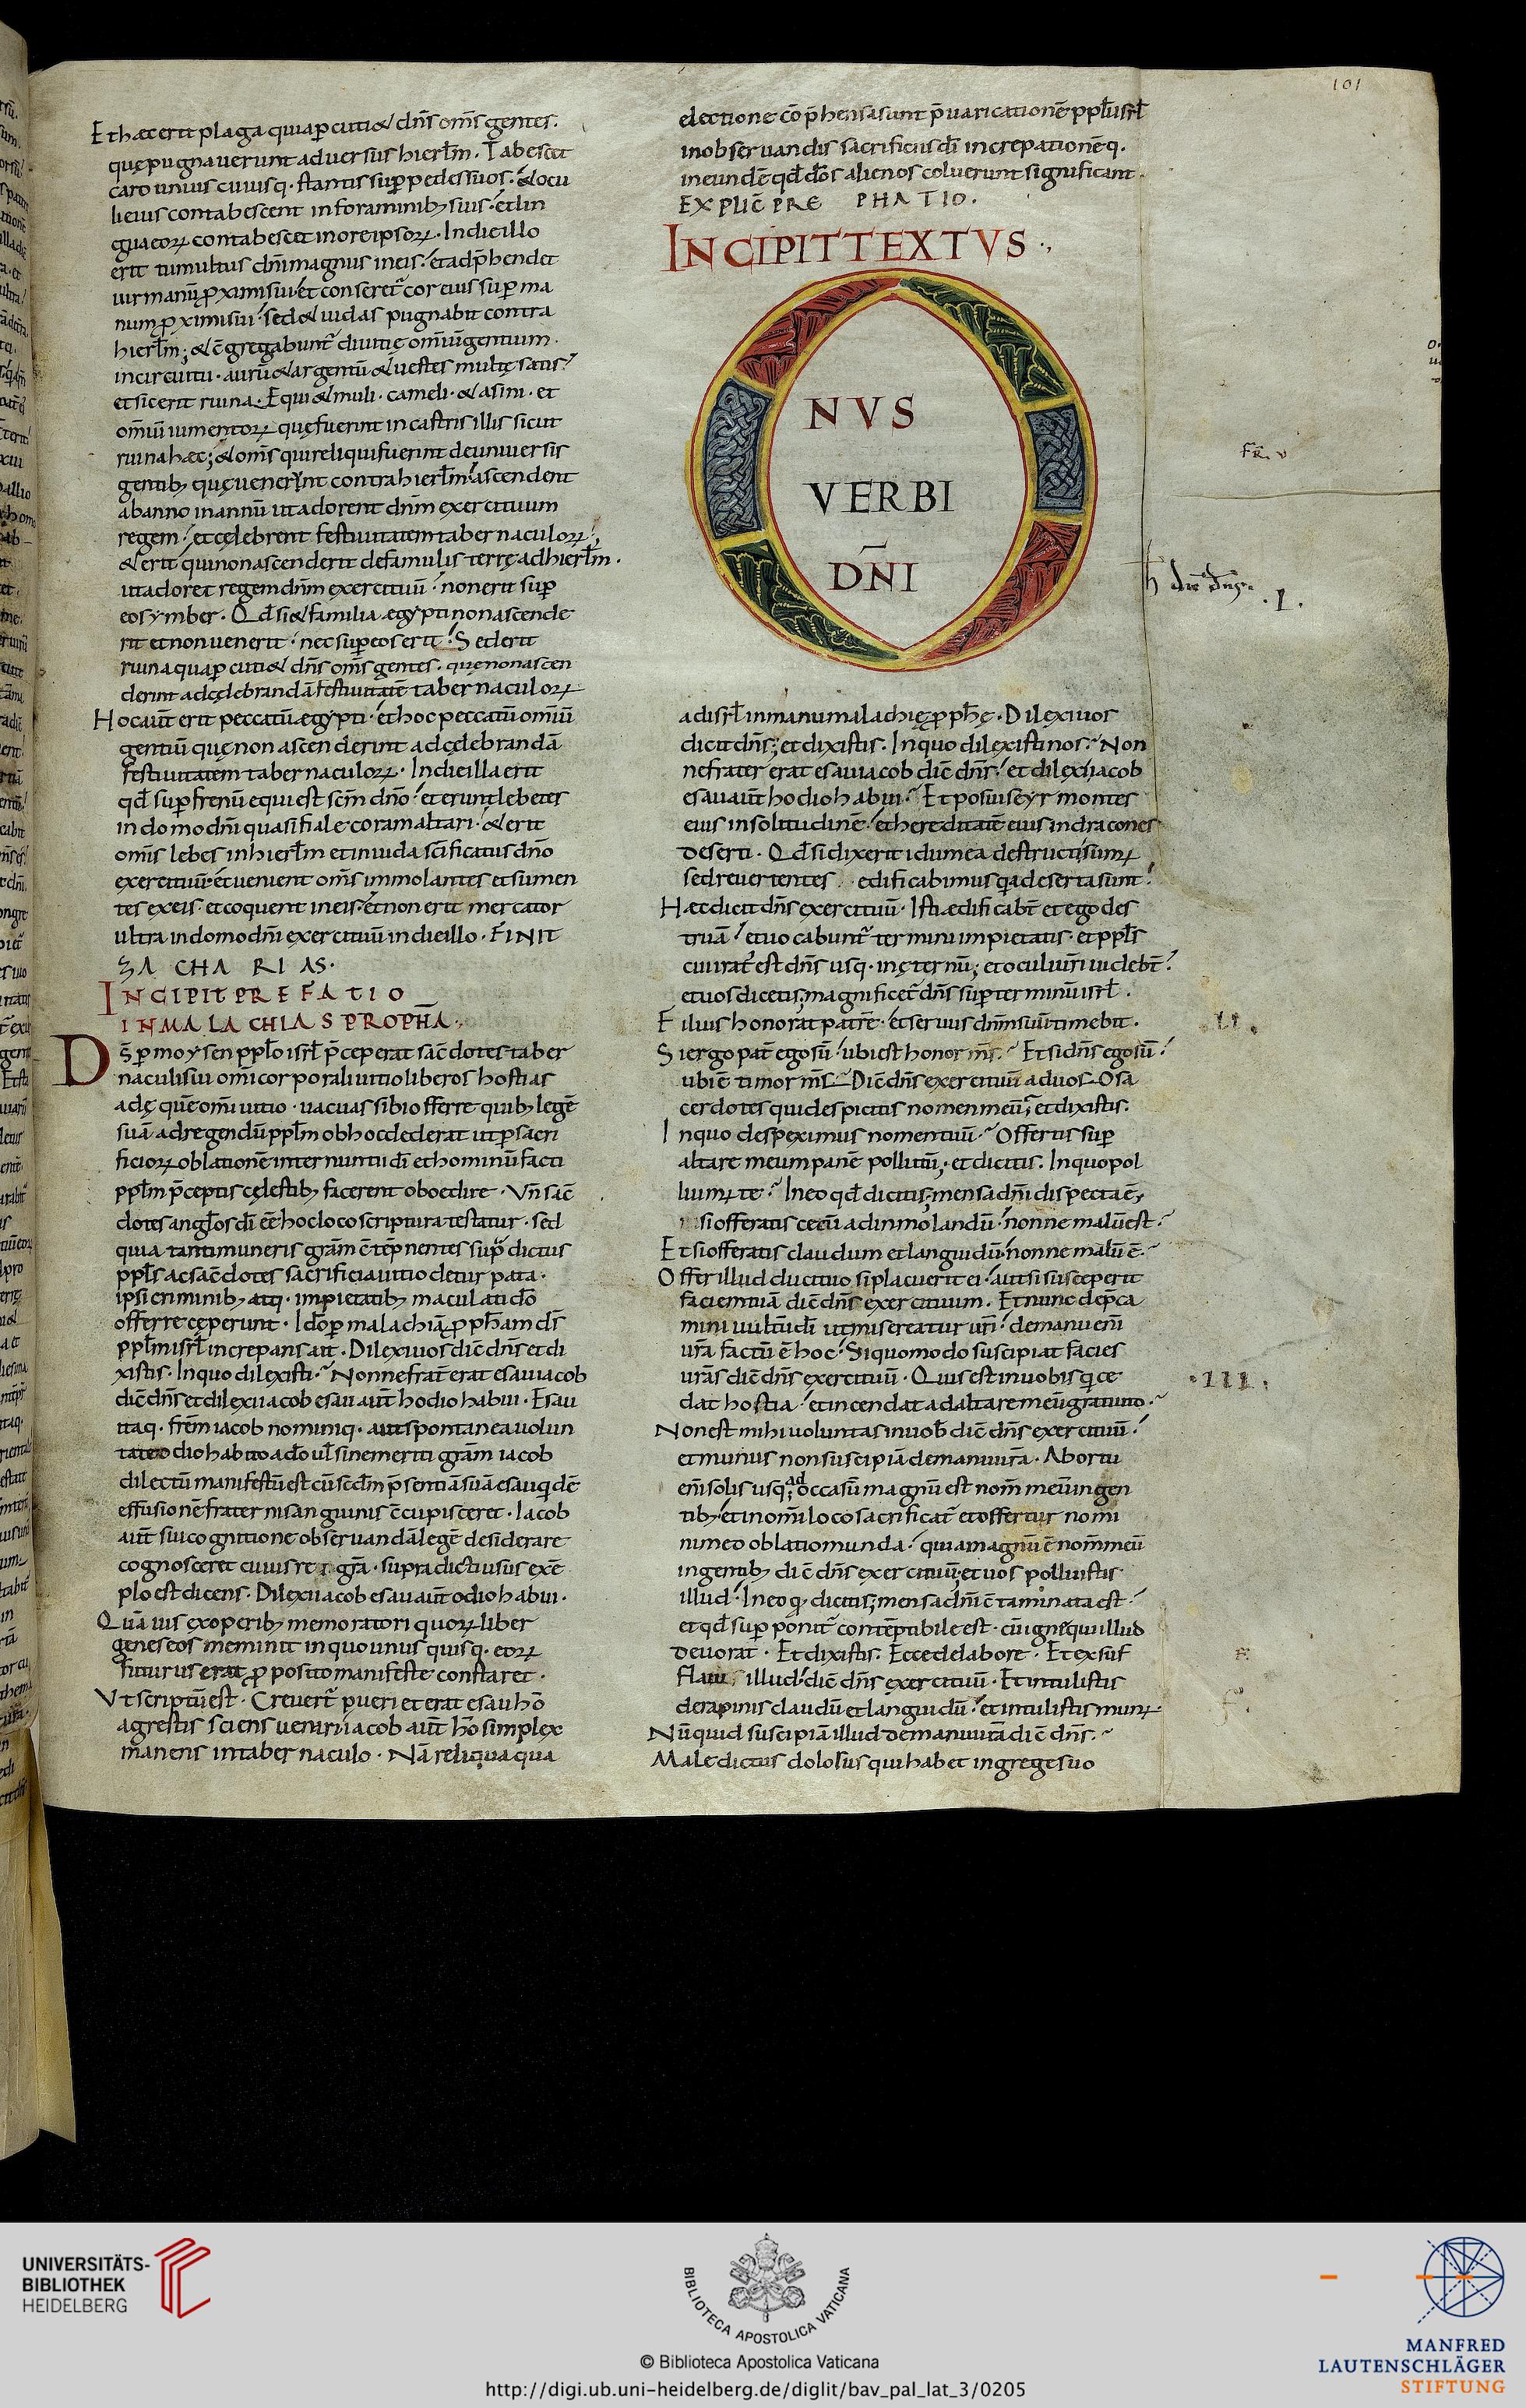 101
Et haec erit plaga qua p̄cuti& dn̄s om̄s gentes.
quę pugnauerunt aduersus hierl̄m. Tabescet
caro unius cuiusq. stantis sup̄ pedes suos. & ocu
li eius contabescent in foraminib; suis. et lin
gua eoꝝ contabescet in ore ipsoꝝ. In die illo
erit tumultus dn̄i magnus in eis. et adp̄hendet
uir manū ꝓximi sui et conseret̄ cor eius sup̄ ma
num ꝓximi sui. sed & iudas pugnabit contra
hierl̄m; & c̄gregabunt̄ diuitię om̄iū gentium.
in circuitu. aurū & argentū & uestes multę satis.
et sic erit ruina. Equi & muli. cameli. & asini. et
om̄iū iumentoꝝ quę fuerint in castris illis sicut
ruina haec; & om̄s qui reliqui fuerint de uniuersis
gentib; quę uenerint contra hierl̄m ascendent
ab anno in annū ut adorent dn̄m exercituum
regem. et cęlebrent festiuitatem tabernaculoꝝ;
& erit qui non ascenderit de familiis terrę ad hierl̄m.
ut adoret regem dn̄m exercituū. non erit sup̄
eos ymber. Qd̄ si & familia aegypti non ascende
rit et non uenerit. nec sup̄ eos erit. Sed erit
ruina qua p̄cuti& dn̄s om̄s gentes. quę non ascen
derint ad cęlebrandā festiuitatē tabernaculoꝝ
Hoc aut̄ erit peccatū aegypti. et hoc peccatū om̄iū
gentiū quę non ascenderint ad cęlebrandā
festiuitatem tabernaculoꝝ. In die illa erit
qd̄ sup̄ frenū equi est scm̄ dn̄o. et erunt lebetes
in domo dn̄i quasi fiale coram altari. & erit
om̄is lebes in hierl̄m et in iuda sc̄ificatus dn̄o
exercituū. et uenient om̄s immolantes et sumen
tes ex eis. et coquent in eis. et non erit mercator
ultra in domo dn̄i exercituū in die illo. FINIT
ZACHARIAS.
INCIPIT PREFATIO
IN MALACHIAS PROPHA.
Ds̄ p̄ moysen ppl̄o isrl̄ p̄ceperat sac̄dotes taber
naculi sui om̄i corporali uitio liberos hostias
adęque om̄i uitio. uacuas sibi offerre quib; legē
suā ad regendū ppl̄m ob hoc dederat ut p̄ sacri
ficioꝝ oblationē internuntii dī et hominū facti
ppl̄m p̄ceptis cęlestib; facerent oboedire. Vn̄ sac̄
dotes angl̄os dī eē hoc loco scriptura testatur. sed
quia tanti muneris gr̄am c̄tēpnentes supra dictus
ppl̄s ac sac̄dotes sacrificia uitio deturpata.
ipsi criminib; atq. impietatib; maculati dō
offerre cęperunt. Idō p̄ malachiā ꝓph̄am ds̄
ppl̄m isrl̄ increpans ait. Dilexi uos dic̄ dn̄s et di
xistis. In quo dilexisti. Nonne frat̄ erat esau iacob
dic̄ dn̄s et dilexi iacob esau aut̄ hodio habui. Esau
itaq. frēm iacob nominiq. aut spontanea uolun
tate odio habito a dō ul̄ sine meriti gr̄am iacob
dilectū manifestū est cū scd̄m p̄sentiā suā esau qidē
effusionē fraterni sanguinis c̄cupisceret. Iacob
aut̄ sui cognitione obseruandā legē desiderare
cognosceret cuius rei gr̄a. supra dicti usus exē
plo est dicens. Dilexi iacob esau aut̄ odio habui.
Quā uis ex operib; memorator i quoꝝ liber
geneseos meminit in quo unus quisq. eoꝝ
futurus erat ꝓposito manifeste constaret.
Vt scriptū est. Creuer̄t pueri et erat esau hō
agrestis sciens uenari iacob aut̄ hō simplex
manens in tabernaculo. Nā reliqua qua
electione cōp̄hensa sunt p̄uaricationē ppl̄i isrl̄
in obseruandis sacrificiis dī increpationēq.
in eundē qd̄ dōs alienos coluerunt significant.
EXPLIC̄ PREPHATIO.
INCIPIT TEXTVS
ONVS
VERBI
DN̄I
ad isrl̄ in manu malachię ꝓph̄ę. Dilexi uos
dicit dn̄s; et dixistis. In quo dilexisti nos. Non
ne frater erat esau iacob dic̄ dn̄s. et dilexi iacob
esau aut̄ hodio habui. Et posui seyr montes
eius in solitudinē. et hereditatē eius in dracones
deserti. Qd̄ si dixerit idumea destructi sumꝰ
sed reuertentes edificabimus q̄a deserta sunt.
Haec dicit dn̄s exercituū. Isti aedificabt̄ et ego des
truā. et uocabunt̄ termini impietatis. et ppl̄s
cui irat̄ est dn̄s usq. in ęternū; et oculi ur̄i uidebt̄.
et uos dicetis; magnificet̄ dn̄s sup̄ terminū isrl̄.
Filius honorat patrē. et seruus dnm̄ suū timebit.
Si ergo pat̄ ego sū. ubi est honor m̄s. Et si dn̄s ego sū.
ubi ē timor m̄s. Dic̄ dn̄s exercituū ad uos. O sa
cerdotes qui despicitis nomen meū; et dixistis.
In quo despeximus nomen tuū. Offertis sup̄
altare meum panē pollutū; et dicitis. In quo pol
luimꝰ te. In eo qd̄ dicitis; mensa dn̄i dispecta ē;
si offeratis cecū ad inmolandū. nonne malū est.
Et si offeratis claudum et languidū. nonne malū ē.
Offer illud duci tuo si placuerit ei. aut si susceperit
faciem tuā dic̄ dn̄s exercituum. Et nunc dep̄ca
mini uultū dī ut misereatur ur̄i. de manu eni
ur̄a factū ē hoc. Si quomodo suscipiat facies
ur̄as dic̄ dn̄s exercituū. Quis est in uobis qi ce
dat hostia. et incendat ad altare meū gratuito.
Non est mihi uoluntas in uob̄ dic̄ dn̄s exercituū.
et munus non suscipiā de manu ur̄a. Ab ortu
eni solis usq; ad occasū magnū est nom̄ meū in gen
tib; et in om̄i loco sacrificat̄ et offertur nomi
ni meo oblatio munda. quia magnū ē nom̄ meū
in gentib; dic̄ dn̄s exercituū; et uos polluistis
illud. In eo q; dicitis; mensa dn̄i c̄taminata est.
et qd̄ sup̄ponit̄ contēptibile est. cū igne qui illud
deuorat. Et dixistis. Ecce de labore. Et exsuf
flatis illud. dic̄ dn̄s exercituū. Et intulistis
de rapinis claudū et languidū. et intulistis munꝰ.
Nūquid suscipiā illud de manu ur̄a dic̄ dn̄s.
Maledictus dolosus qui habet in grege suo
.I.
.II.
.III.
UNIVERSITÄTS-
BIBLIOTHEK
HEIDELBERG
BIBLIOTECA APOSTOLICA VATICANA
© Biblioteca Apostolica Vaticana
http://digi.ub.uni-heidelberg.de/diglit/bav_pal_lat_3/0205
MANFRED
LAUTENSCHLÄGER
STIFTUNG